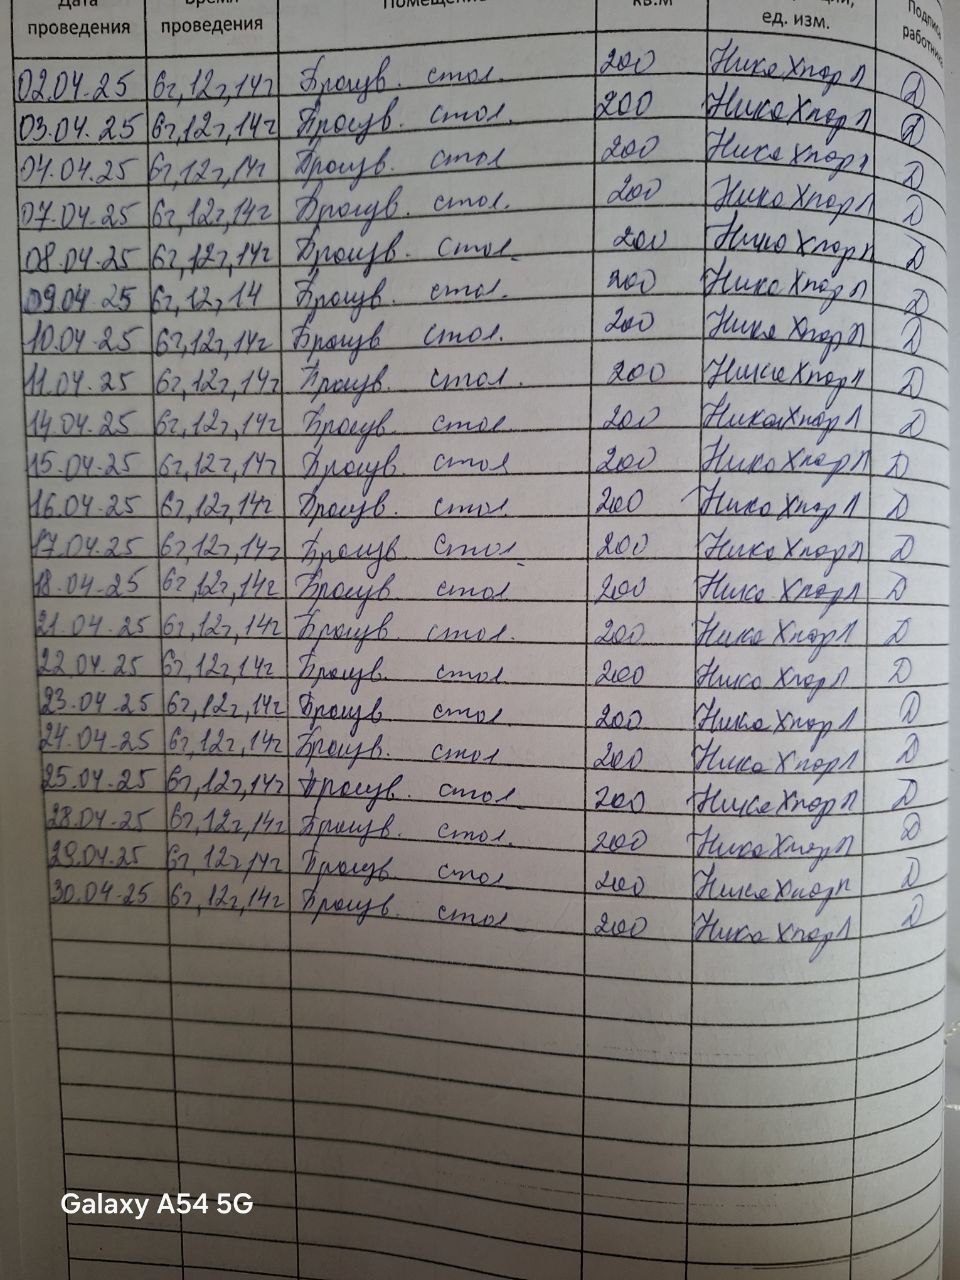 Дата проведения Время проведения Помещение кв.м ед. изм. Подпись работника
02.04.25 6ч,12ч,14ч Произв. стол. 200 Ника Хлор П Д
03.04.25 6ч,12ч,14ч Произв. стол. 200 Ника Хлор П Д
04.04.25 6ч,12ч,14ч Произв. стол 200 Ника Хлор П Д
07.04.25 6ч,12ч,14ч Произв. стол. 200 Ника Хлор П Д
08.04.25 6ч,12ч,14ч Произв. стол. 200 Ника Хлор П Д
09.04.25 6ч,12,14 Произв. стол. 200 Ника Хлор П Д
10.04.25 6ч,12ч,14ч Произв стол. 200 Ника Хлор П Д
11.04.25 6ч,12ч,14ч Произв. стол. 200 Ника Хлор П Д
14.04.25 6ч,12ч,14ч Произв. стол. 200 Ника Хлор П Д
15.04.25 6ч,12ч,14ч Произв. стол 200 Ника Хлор П Д
16.04.25 6ч,12ч,14ч Произв. стол. 200 Ника Хлор П Д
17.04.25 6ч,12ч,14ч Произв. стол 200 Ника Хлор П Д
18.04.25 6ч,12ч,14ч Произв. стол 200 Ника Хлор П Д
21.04.25 6ч,12ч,14ч Произв. стол. 200 Ника Хлор П Д
22.04.25 6ч,12ч,14ч Произв. стол 200 Ника Хлор П Д
23.04.25 6ч,12ч,14ч Произв стол 200 Ника Хлор П Д
24.04.25 6ч,12ч,14ч Произв. стол 200 Ника Хлор П Д
25.04.25 6ч,12ч,14ч Произв. стол 200 Ника Хлор П Д
28.04.25 6ч,12ч,14ч Произв. стол. 200 Ника Хлор П Д
29.04.25 6ч,12ч,14ч Произв. стол 200 Ника Хлор П Д
30.04.25 6ч,12ч,14ч Произв. стол 200 Ника Хлор П Д
Galaxy A54 5G